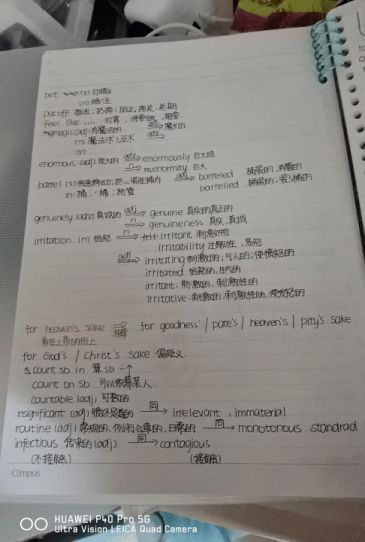 bet (v) 打赌
(n) 赌注
put off 推迟
feel like .... 想要
magic (adj) 有魔法的 adj→ 魔术的
(n) 魔法
(v)
enormous (adj) 庞大的 adv→ enormously 巨大地
n→ enormity 巨大
barrel (v) adj→ barreled 桶装的
(n) 桶; 一桶; 枪管 barrelled 桶装的
genuinely (adv) 真诚的 adj→ genuine 真实的真正的
n→ genuineness 真实, 真诚
irritation (n) 恼怒 n→ irritant 刺激物
irritability 过敏性, 易怒
adj→ irritating 刺激的; 气人的; 使愤怒的
irritated 恼怒的, 生气的
irritant: 刺激的, 刺激性的
irritative: 刺激的, 刺激性的, 使发怒的
for heaven's sake for goodness' / pete's / heaven's / pity's sake
看在上帝的份上
for God's / Christ's sake 同义
& count sb in 算 sb 一个
count on sb 可以依靠某人
countable (adj) 可数的
insignificant (adj) 微不足道的 同→ irrelevant , immaterial
routine (adj) 常规的, 例行公事的, 日常的 同→ monotonous standrad
infectious 传染的 (adj) 同→ contagious
(不接触) (接触)
Campus
HUAWEI P40 Pro 5G
Ultra Vision LEICA Quad Camera